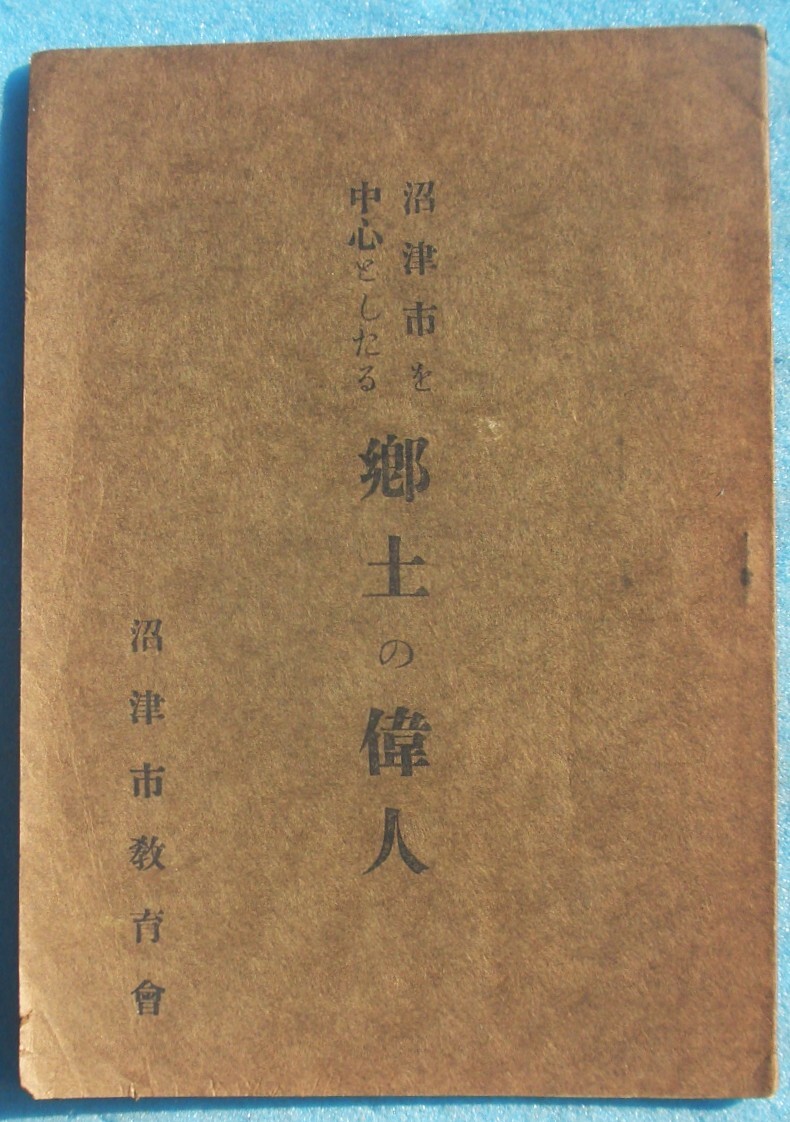 沼津市を
中心としたる
鄕土の偉人
沼津市敎育會